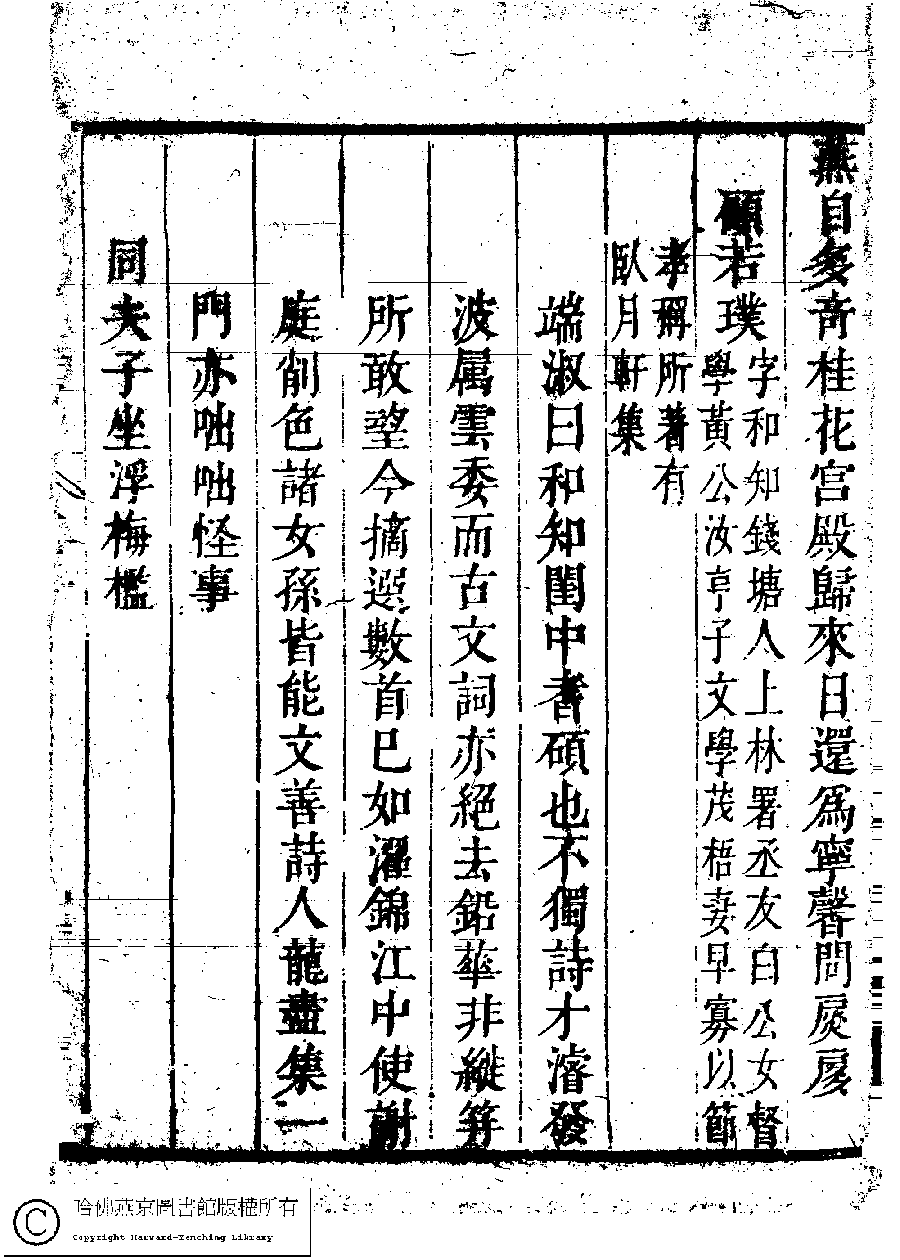 燕自矣音桂花宫殿歸來日還爲寧馨問扊扅
顧若璞
字和知錢塘人上林署丞友白公女督
學黃公汝亨子文學茂梧妻早寡以節
孝稱所著有
臥月軒集
端淑曰和知閨中耆碩也不獨詩才濬發
波属雲委而古文詞亦絕去鉛華非縱笄
所敢望今摘選數首已如濯錦江中使謝
庭削色諸女孫皆能文善詩人龍盡集一
門亦咄咄怪事
同夫子坐浮梅檻
哈佛燕京圖書館版權所有
Copyright Harvard-Yenching Library